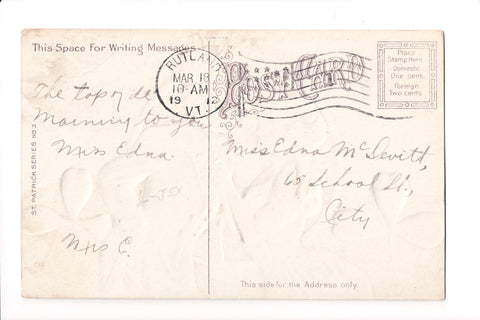 This Space For Writing Messages
RUTLAND
MAR 18
10-AM
19 12
VT.
POST CARD
Place
Stamp Here
Domestic
One cent.
Foreign
Two cents
The top of de
Morning to you
Miss Edna.
Mrs C.
ST. PATRICK SERIES NO 3
Miss Edna McDevitt,
65 School St.,
City
This side for the Address only.